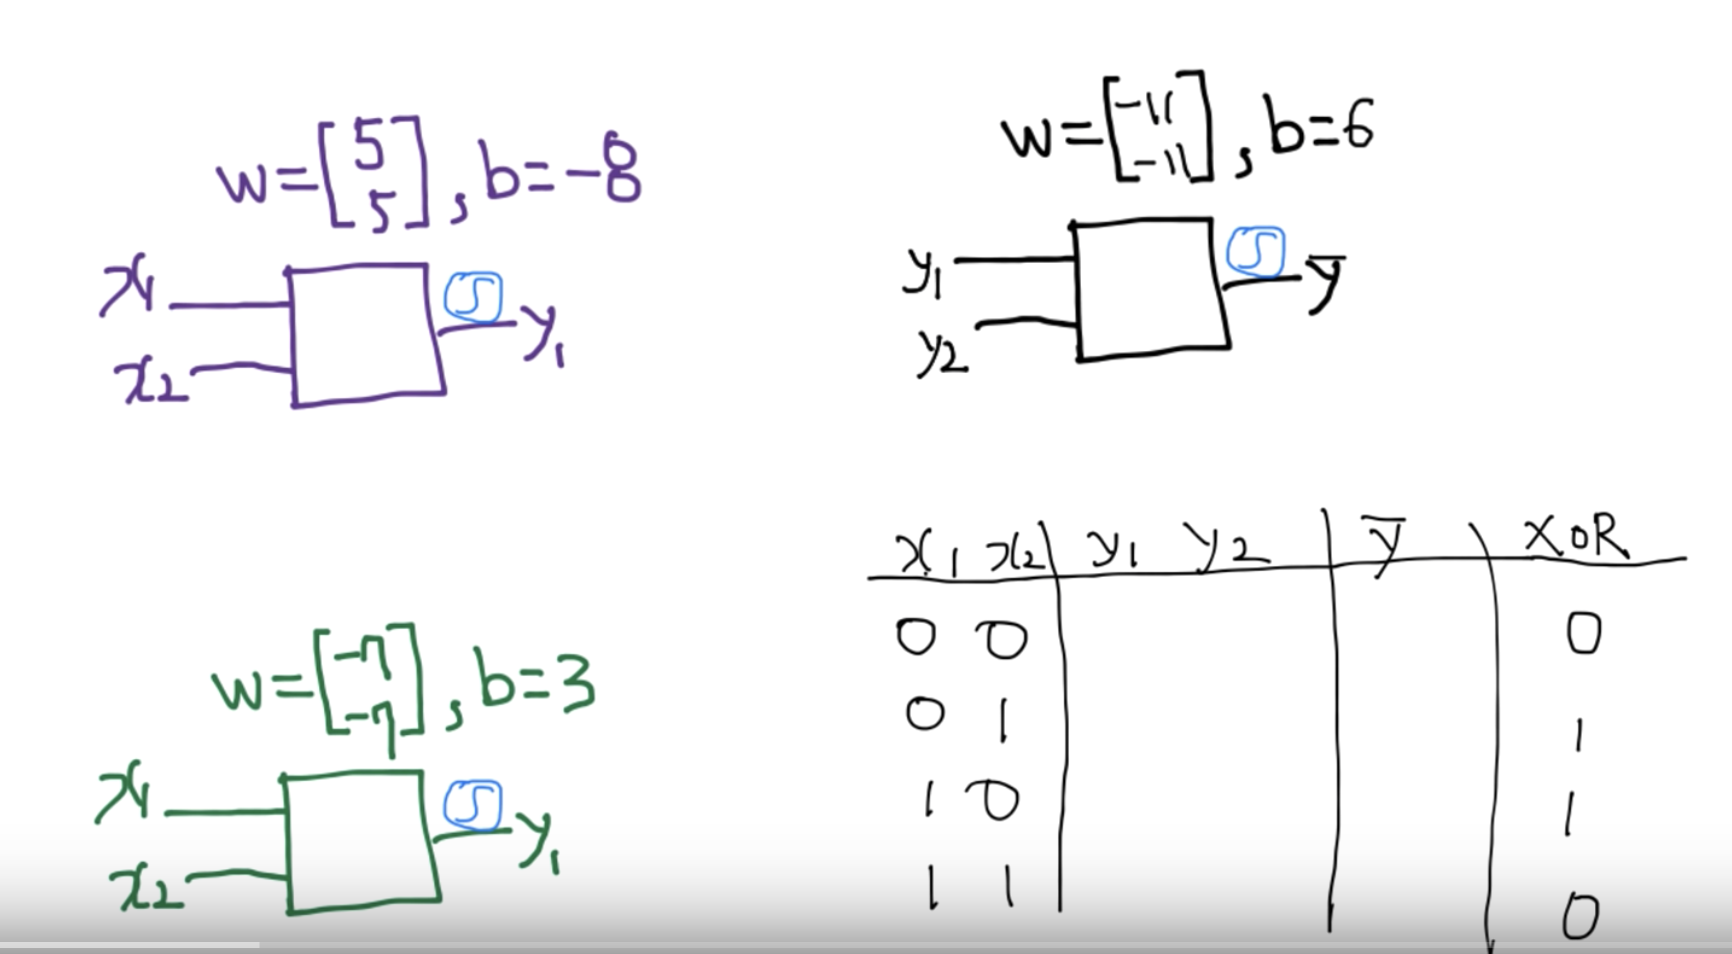 w=[5 5], b=-8
x1
x2
S
y1
w=[-11 -11], b=6
y1
y2
S
ȳ
w=[-7 -7], b=3
x1
x2
S
y1
x1 x2 y1 y2 ȳ XOR
0 0 0
0 1 1
1 0 1
1 1 0